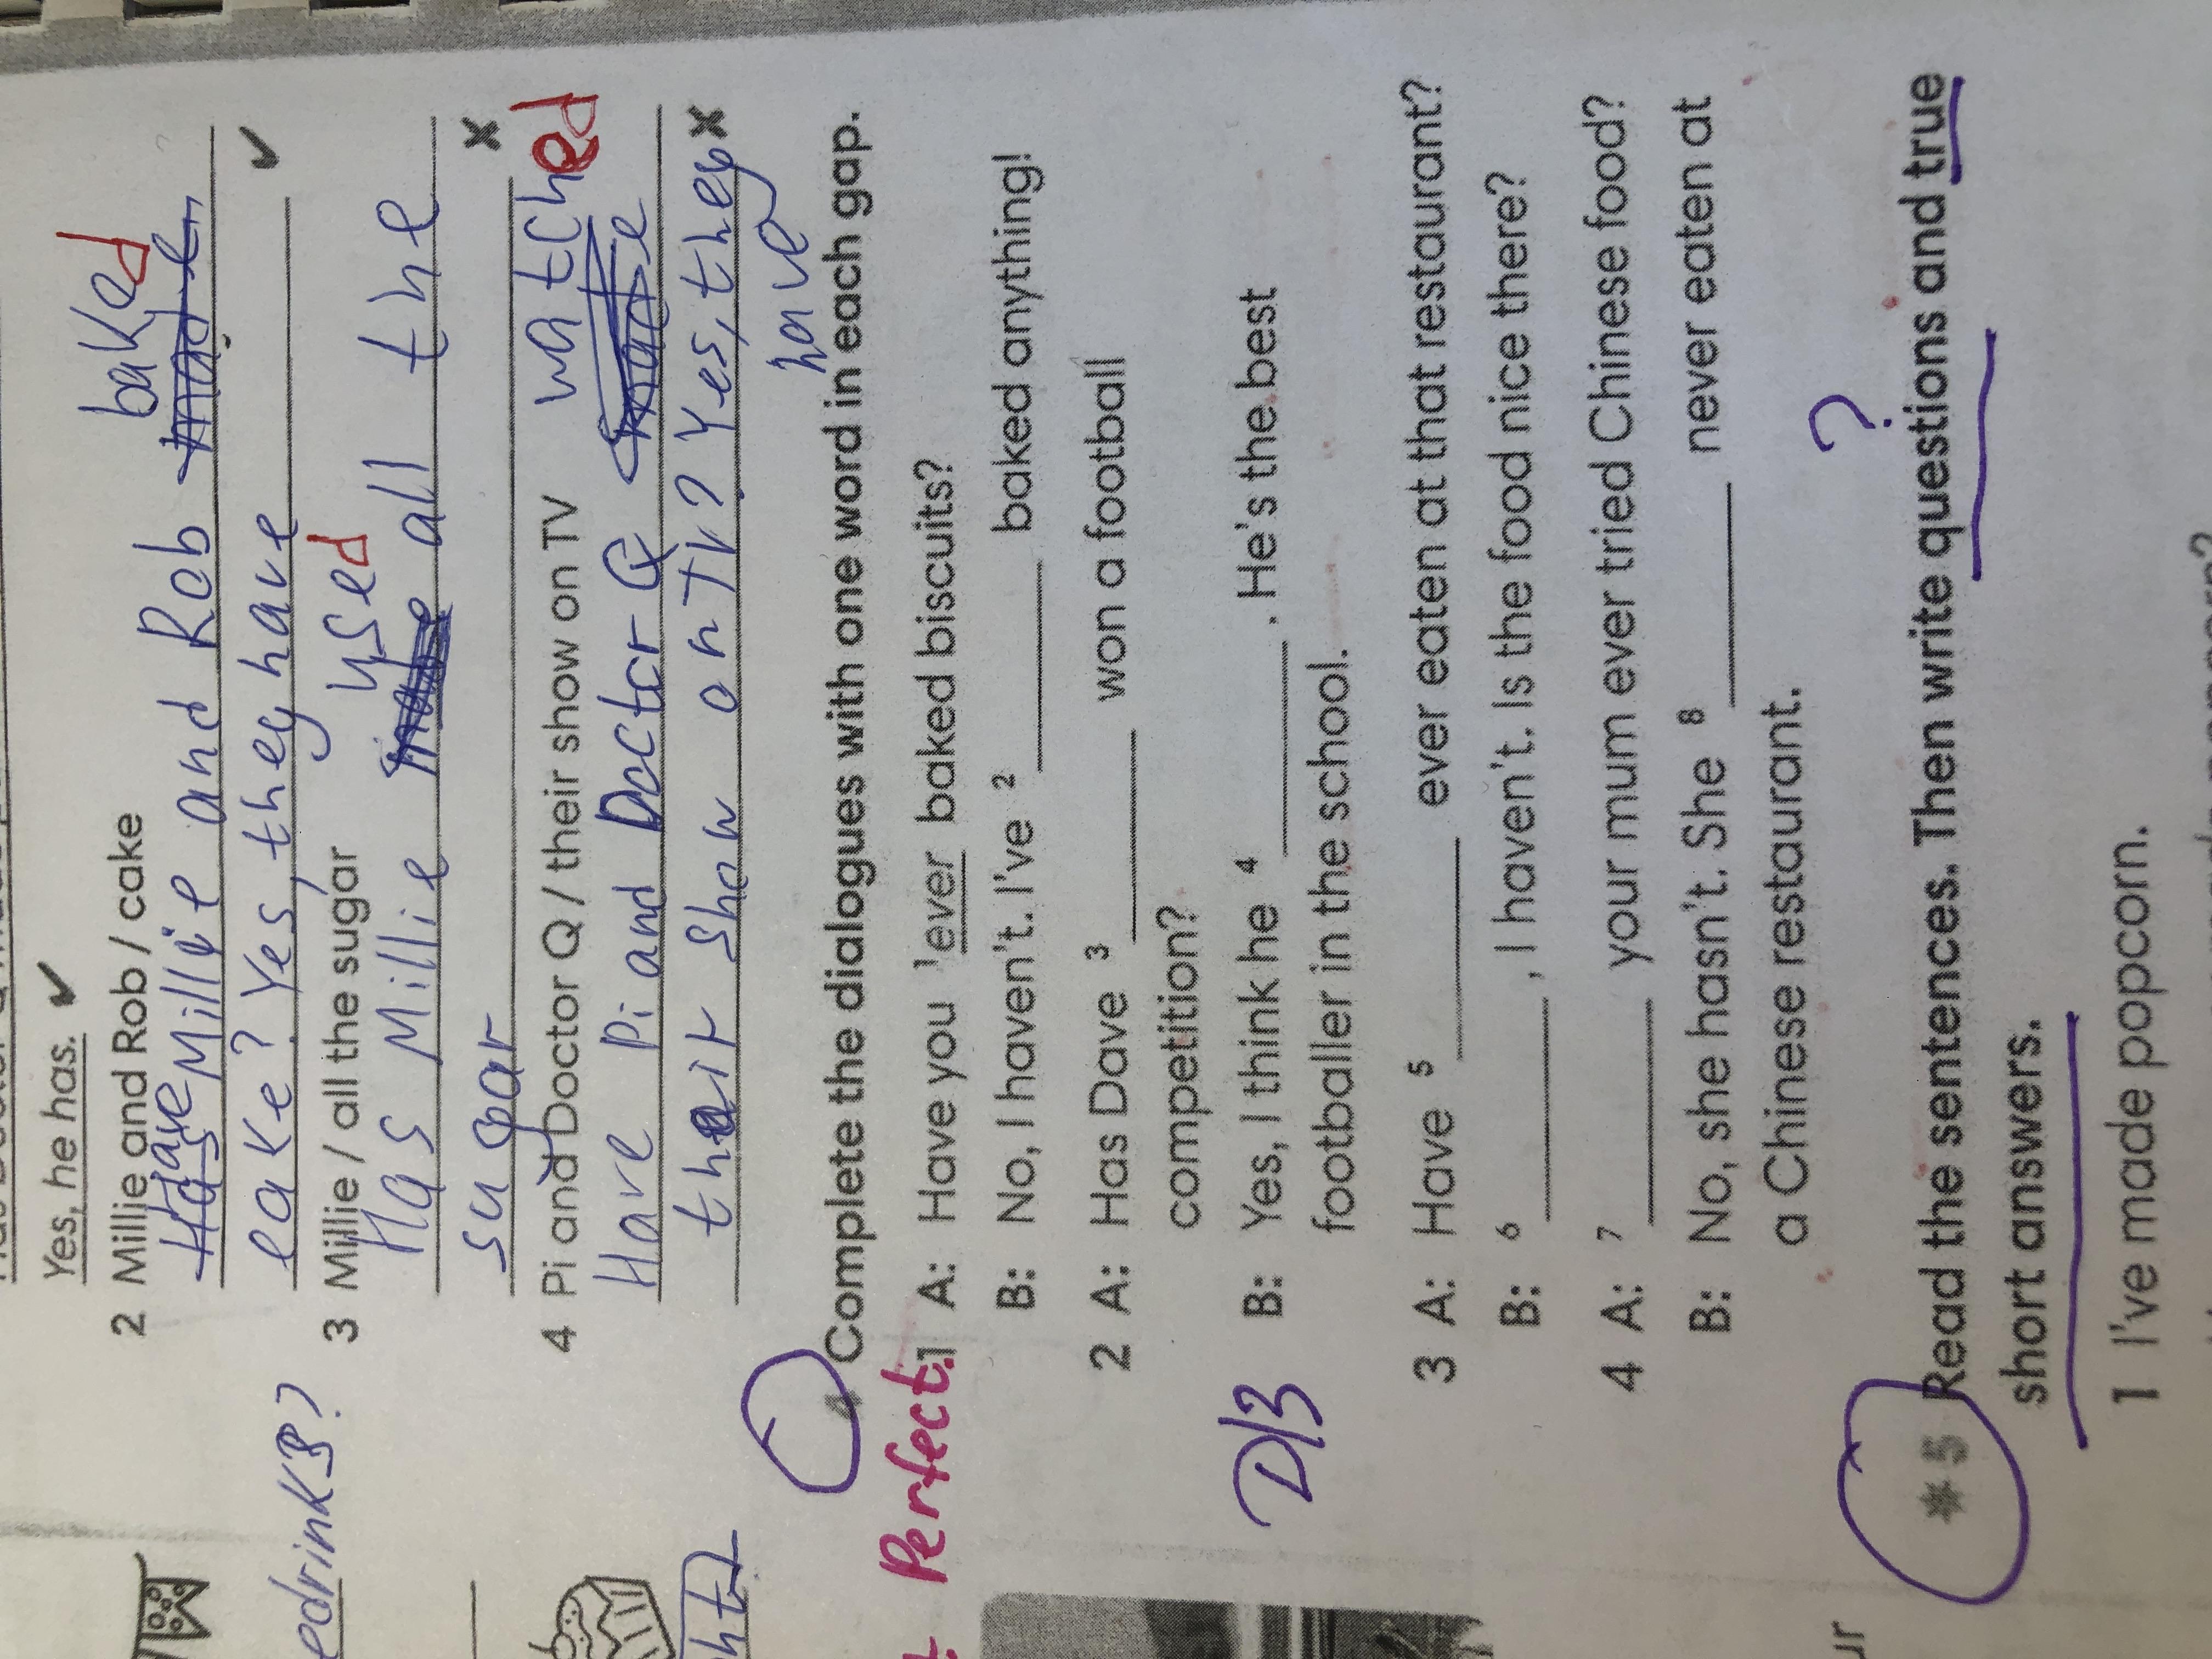 Yes, he has. ✓
2 Millie and Rob / cake
baked
Has Have Millie and Rob made
cake? Yes, they have ✓
3 Millie / all the sugar
used
Has Millie all the
sugar ✗
4 Pi and Doctor Q / their show on TV
watched
Have Pi and Doctor Q
their show on TV? Yes, they ✗
have
4 Complete the dialogues with one word in each gap.
Perfect.
1 A: Have you 1 ever baked biscuits?
B: No, I haven't. I've 2 ____ baked anything!
2 A: Has Dave 3 ____ won a football
competition?
B: Yes, I think he 4 ____. He's the best
footballer in the school.
D/З
3 A: Have 5 ____ ever eaten at that restaurant?
B: 6 ____, I haven't. Is the food nice there?
4 A: 7 ____ your mum ever tried Chinese food?
B: No, she hasn't. She 8 ____ never eaten at
a Chinese restaurant.
?
* 5 Read the sentences. Then write questions and true
short answers.
1 I've made popcorn.